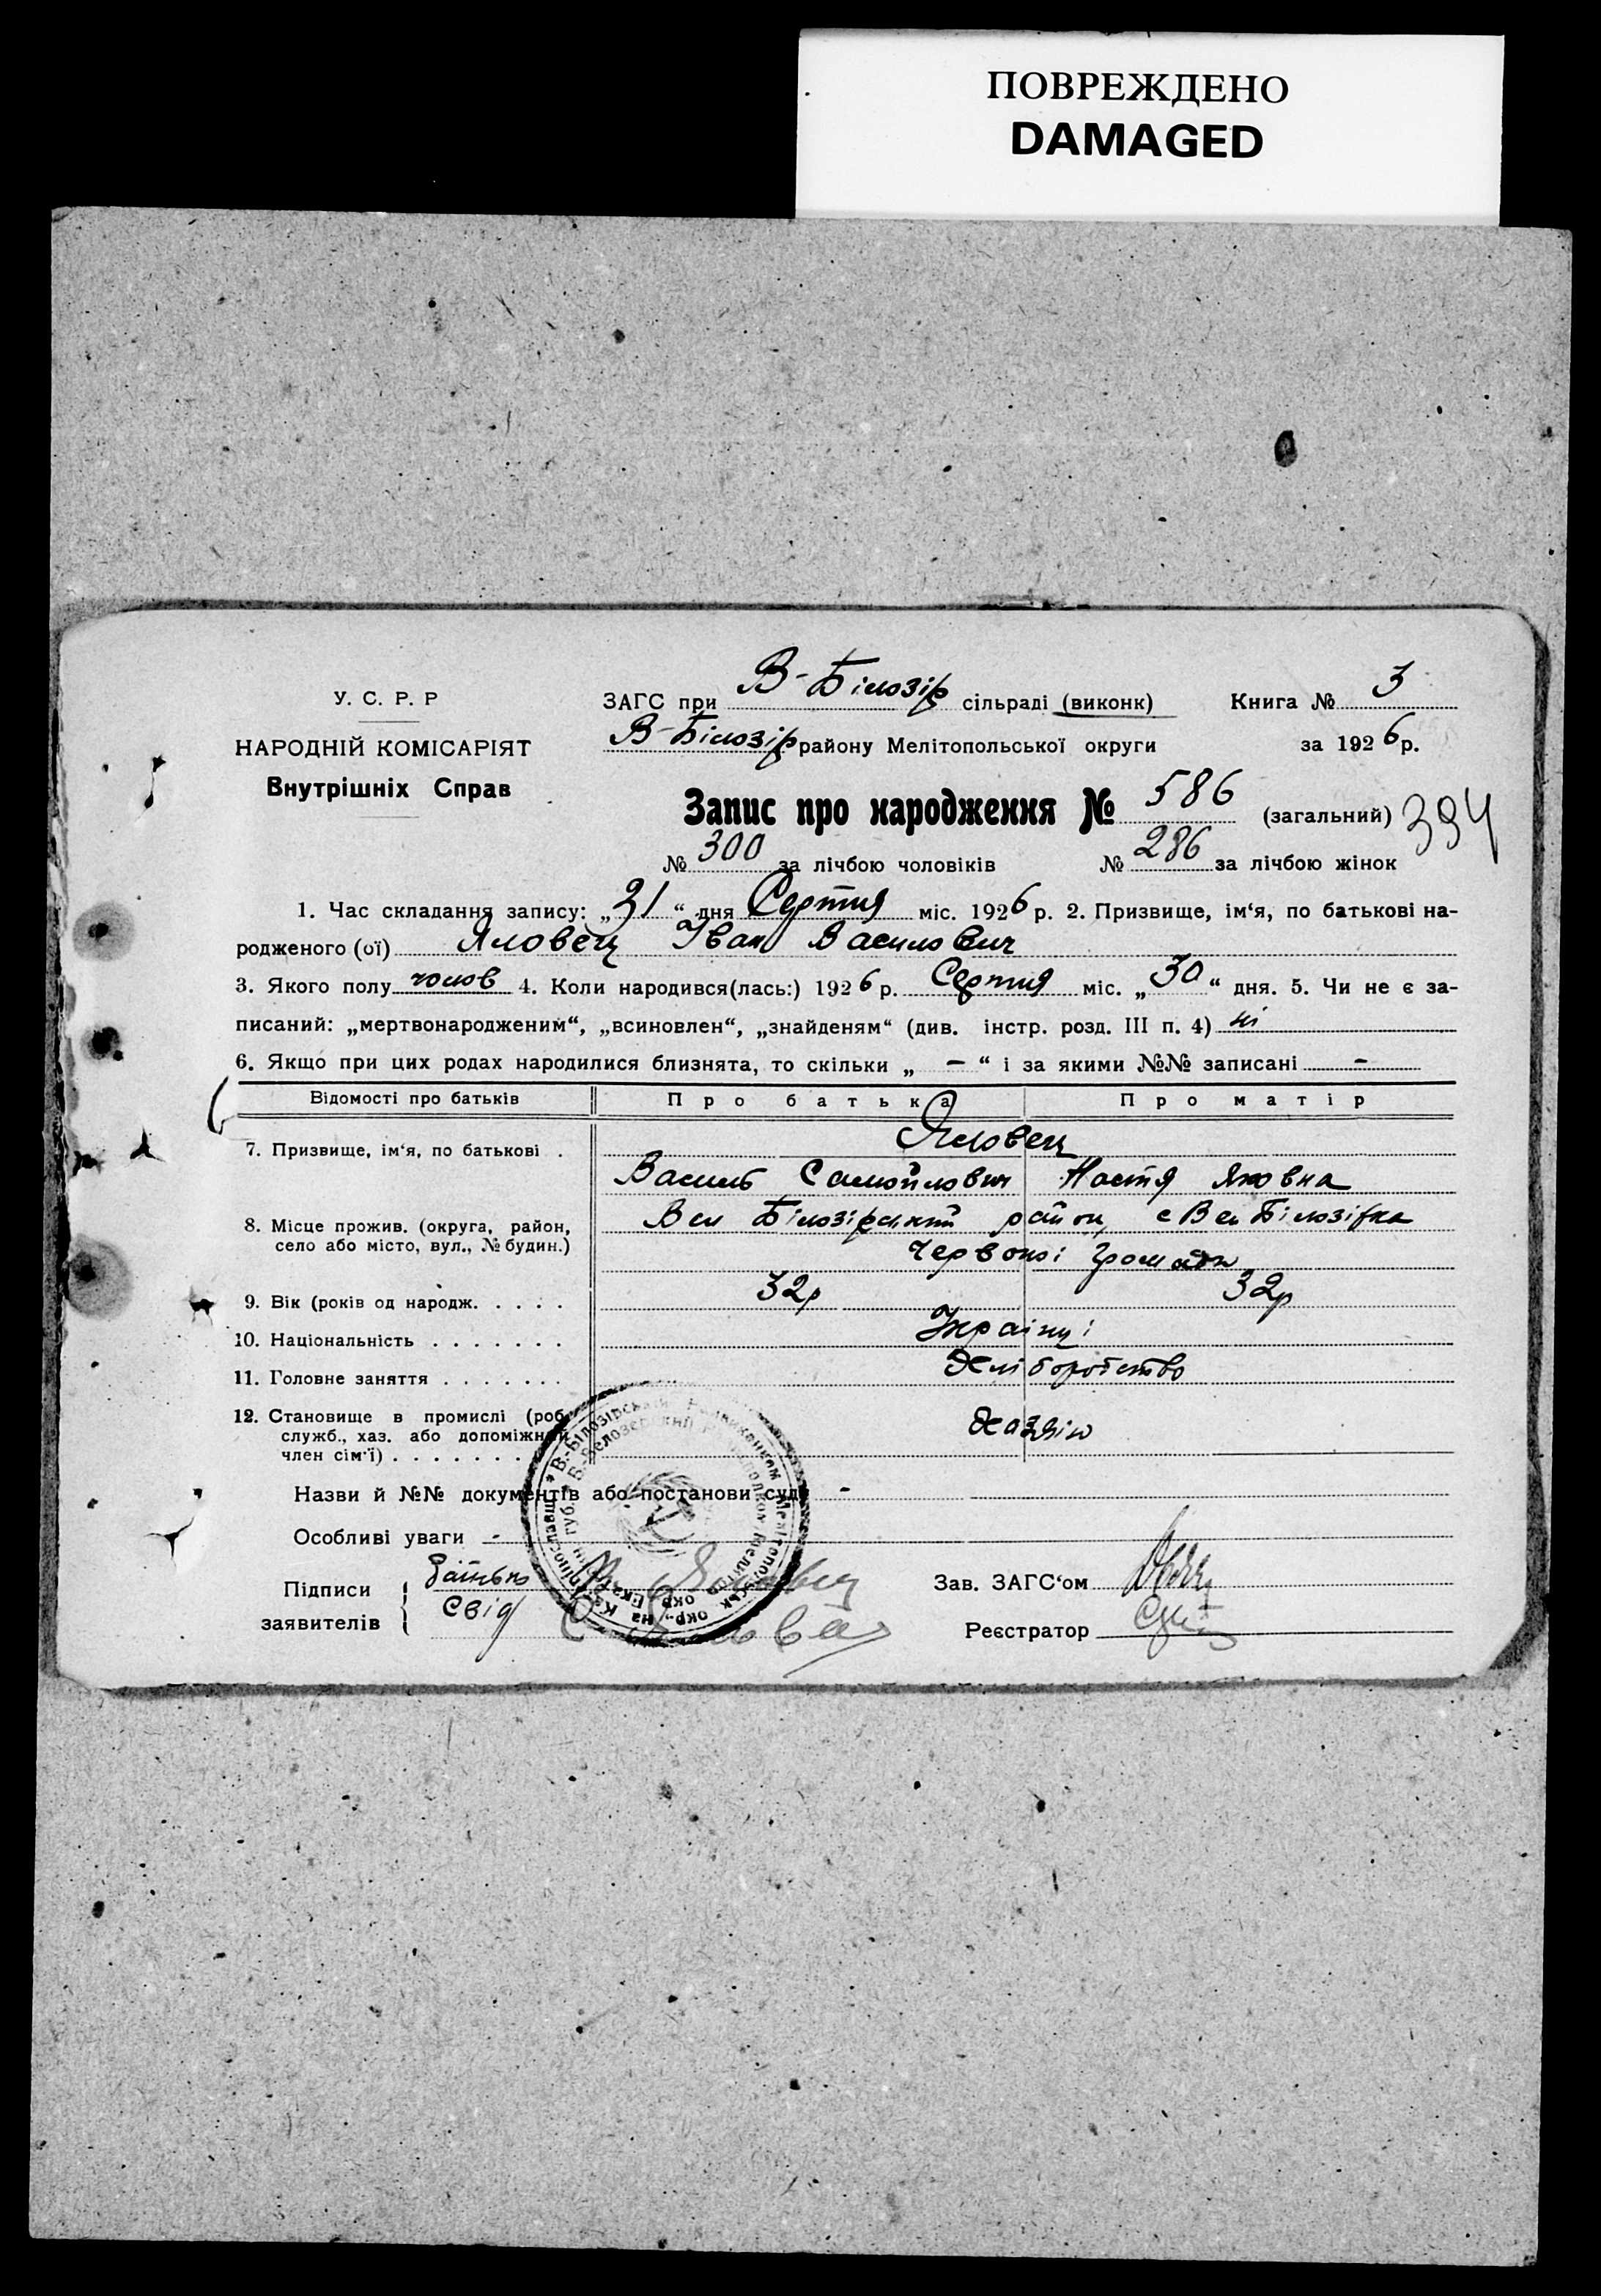 ПОВРЕЖДЕНО
DAMAGED
У. С. Р. Р
НАРОДНІЙ КОМІСАРІЯТ
Внутрішніх Справ
ЗАГС при В-Білозір сільраді (виконк) Книга № 3
В-Білозір району Мелітопольської округи за 1926 р.
Запис про народження № 586 (загальний) 394
№ 300 за лічбою чоловіків № 286 за лічбою жінок
1. Час складання запису: „31“ дня Серпня міс. 1926 р. 2. Призвище, ім‘я, по батькові на-
родженого (ої) Яловец Іван Василович
3. Якого полу чолов 4. Коли народився(лась:) 1926 р. Серпня міс. „30“ дня. 5. Чи не є за-
писаний: „мертвонародженим“, „всиновлен“, „знайденям“ (див. інстр. розд. III п. 4) ні
6. Якщо при цих родах народилися близнята, то скільки „ — “ і за якими №№ записані -
Відомості про батьків Про батька Про матір
7. Призвище, ім‘я, по батькові . Яловец
Василь Самойлович Настя Яковна
8. Місце прожив. (округа, район, село або місто, вул., № будин.) Вел Білозірський район, с Вел Білозірка
Червоної Громади
9. Вік (років од народж. . . . . 32р 32р
10. Національність . . . . . . . Українці
11. Головне заняття . . . . . . . Хліборобство
12. Становище в промислі (роб.
служб., хаз. або допоміжний
член сім‘ї) . . . . . . . Хазяїн
Назви й №№ документів або постанови суду -
Особливі уваги -
Підписи заявителів Батько Яловец
Свід
Зав. ЗАГС‘ом
Реєстратор